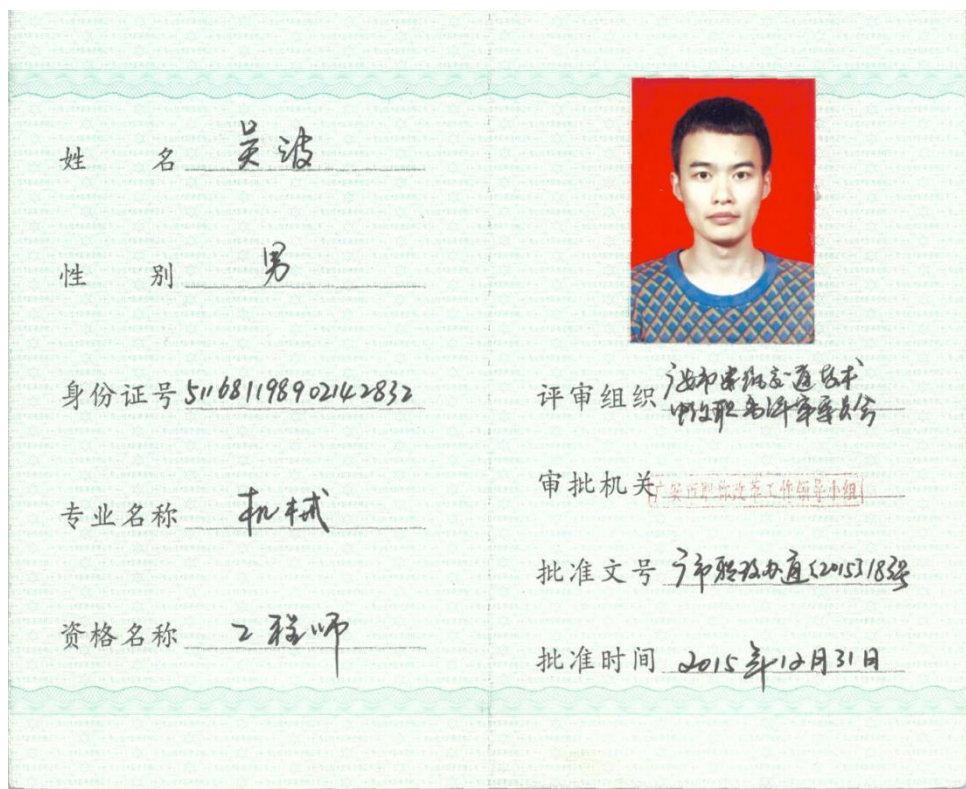 姓 名 吴波
性 别 男
身份证号 511681198902142832
专业名称 机械
资格名称 工程师
评审组织 广安市建筑交通技术
中级职务评审委员会
审批机关 广安市职称改革工作领导小组
批准文号 广市职改办通〔2015〕183号
批准时间 2015年12月31日